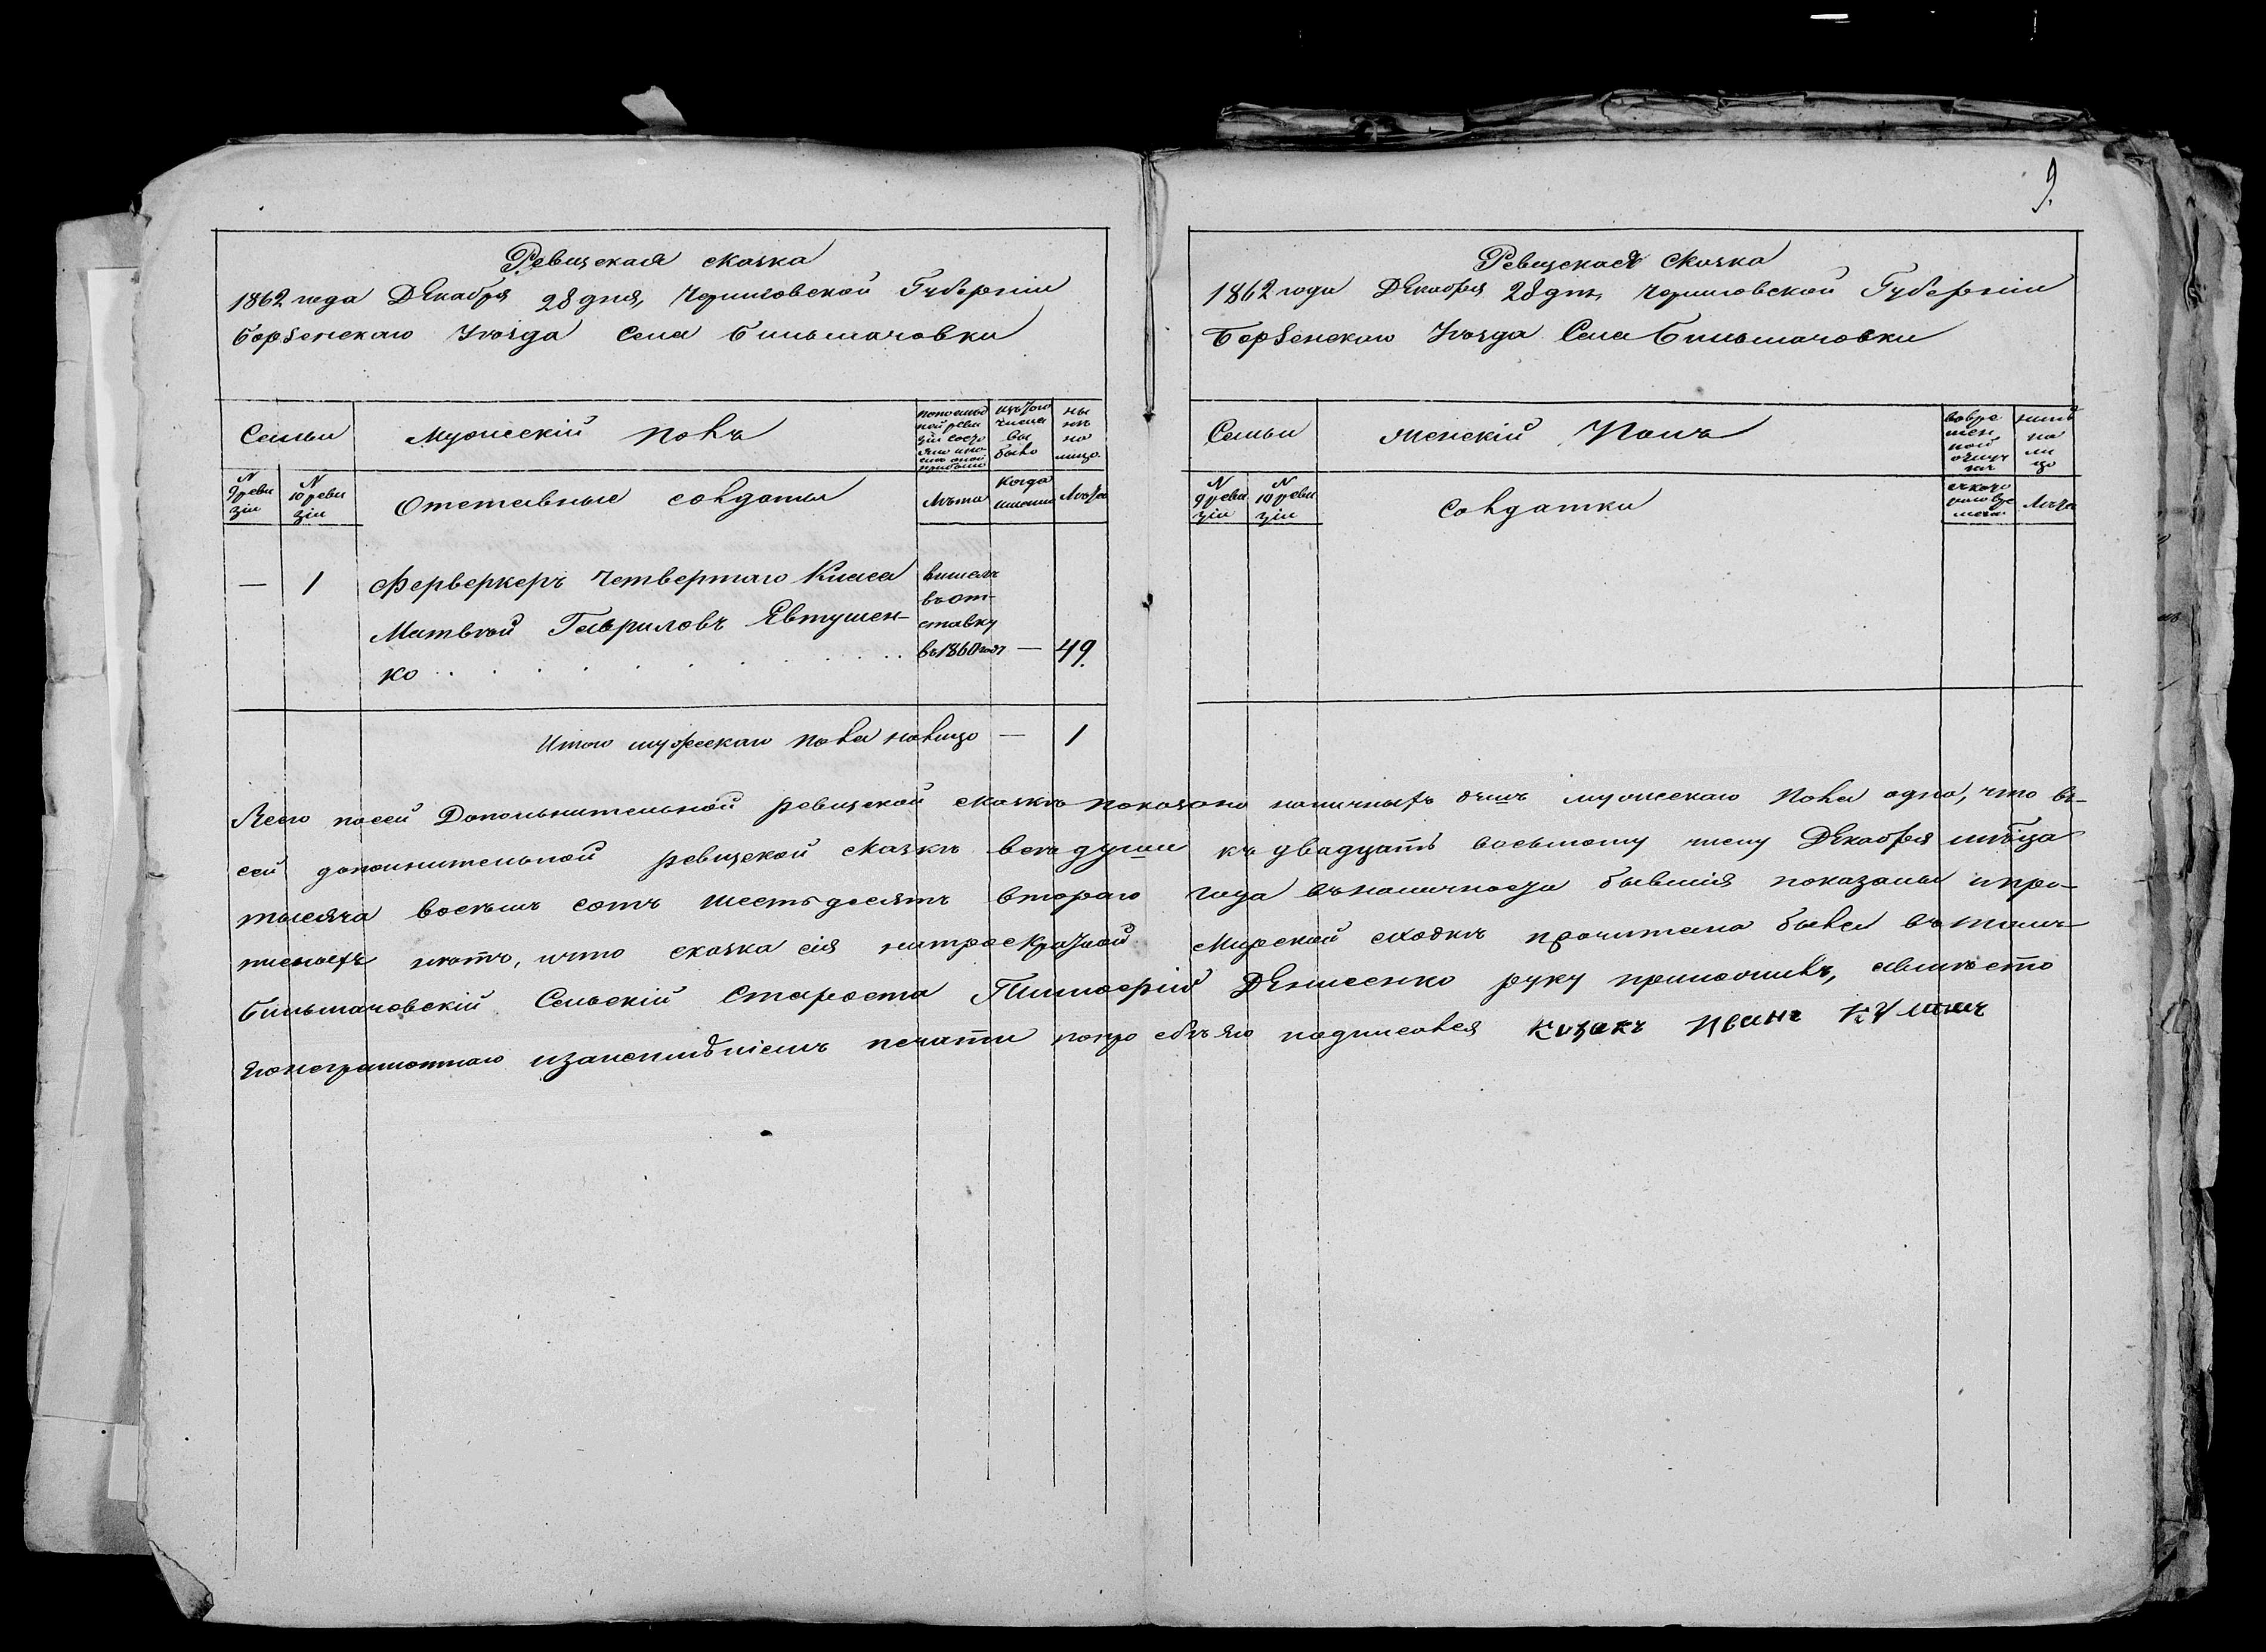 9.
Ревизская сказка
1862 года Декабря 28 дня, Черниговской Губерніи
Борзенскаго Уѣзда Села Бильмачовки
Семьи
Мужескій полъ
по послѣд
ней реви
зіи состо
яло и по
слѣ оной
прибыло
изъ того
числа
вы
было
ны
нѣ
на
лицо
N
9 реви
зіи
N
10 реви
зіи
Отставные солдаты
Лѣта
Когда
именно
Лѣта
— 1 Ферверкеръ Четвертаго Класа
Матвѣй Гавриловъ Явтушен-
ко
вишелъ
въ от-
ставку
въ 1860 годѣ — 49.
Итого мужескаго пола налицо — 1
Ревизская Сказка
1862 года Декабря 28 дня, Черниговской Губерніи
Борзенскаго Уѣзда Села Бильмачовки
Семьи
Женскій Полъ
во вре
мен
ной
отлуч
кѣ
нынѣ
на
ли
цо
N
9 реви
зіи
N
10 реви
зіи
Солдатки
съ кото
раго вре
мени
Лѣта
Всего по сей Дополнительной ревизской сказкѣ показано наличныхъ душъ мужескаго пола одна, что въ
сей дополнительной ревизской сказкѣ всѣ души къ двадцать восьмому числу Декабря мѣсяца
тысяча восемь сотъ шесть десятъ втораго года въ наличности бывшія показаны и про-
писныхъ нѣтъ, и что сказка сія на Мирской сходкѣ прочитана была въ томъ
Бильмачовскій Сельскій Староста Тимофій Денисенко руку приложилъ, а вмѣсто
его неграмотнаго и за неимѣніемъ печати по просбѣ его подписался козакъ Иванъ